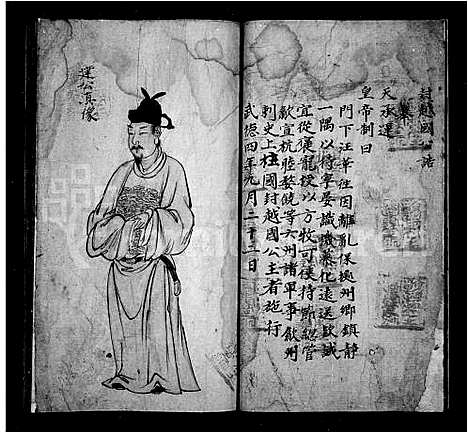 封越國公誥
奉
天承運
皇帝制曰
門下汪華往因離亂保據州鄉鎮靜
一隅以待寧晏識機慕化遠送款誠
宜從襃寵授以方牧可使持節總管
歙宣杭睦婺饒等六州諸軍事歙州
刺史上柱國封越國公主者施行
武德四年九月二十二日
公真像